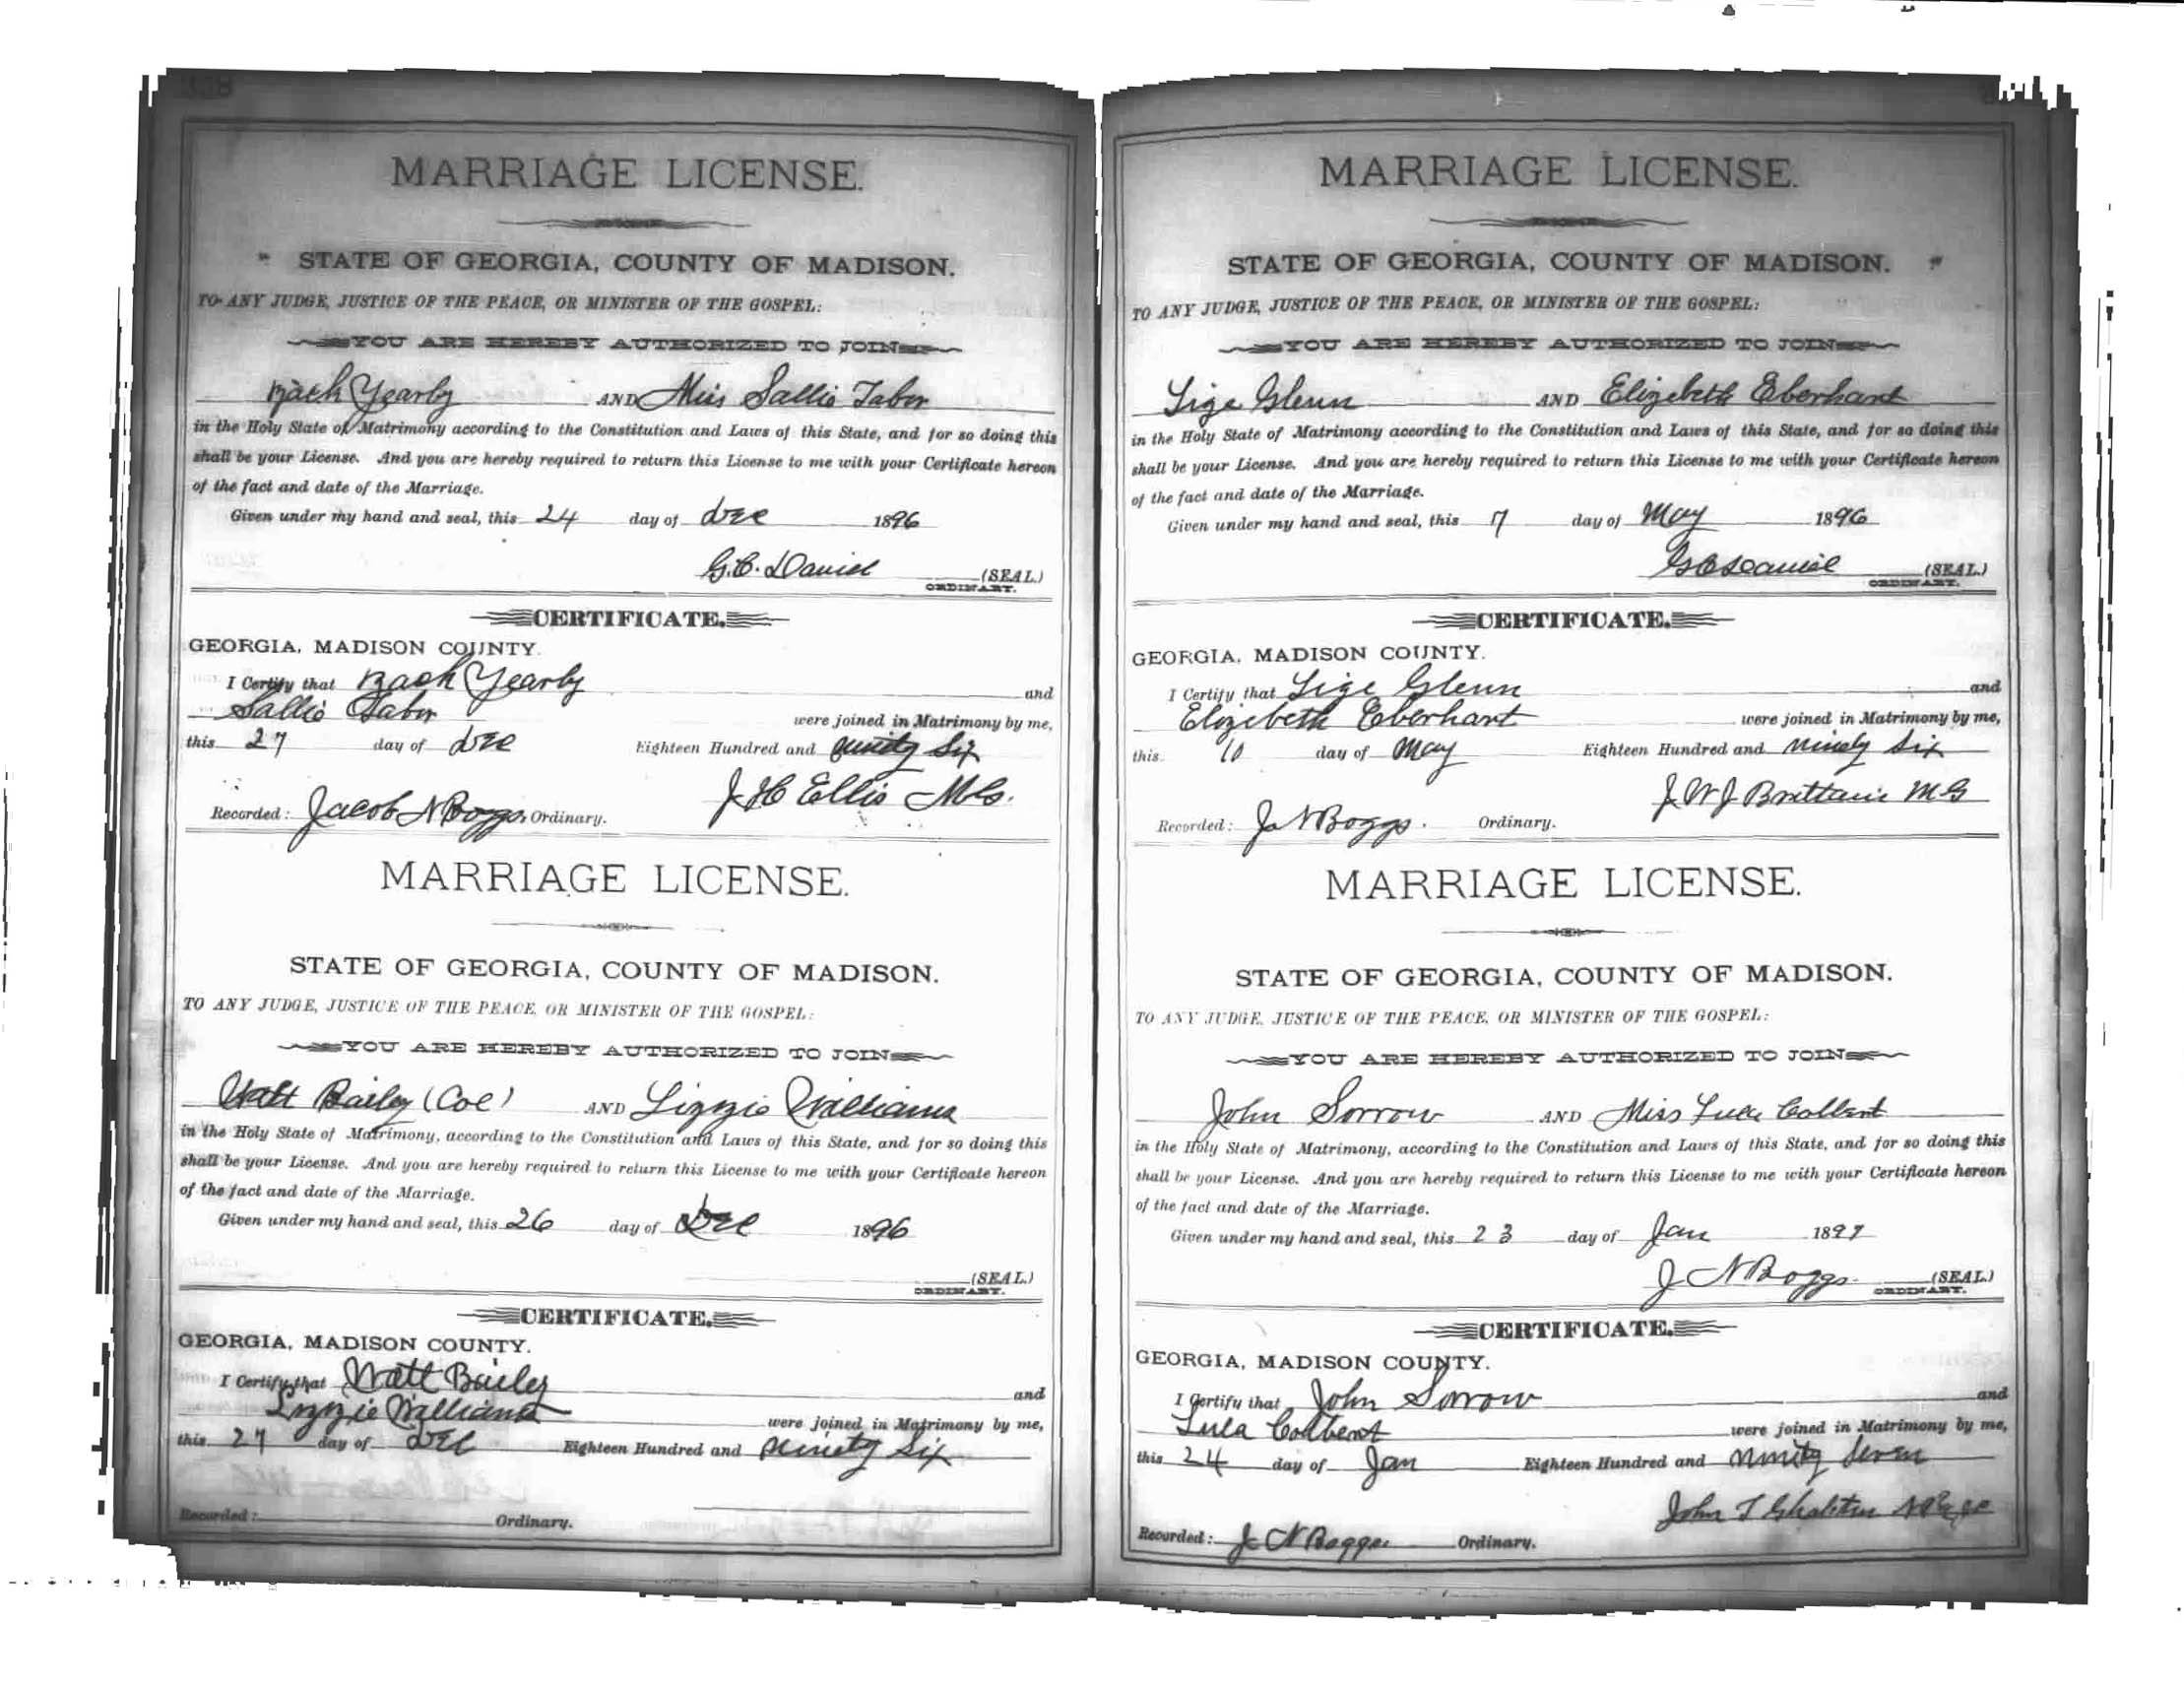 358
MARRIAGE LICENSE.
STATE OF GEORGIA, COUNTY OF MADISON.
TO ANY JUDGE, JUSTICE OF THE PEACE, OR MINISTER OF THE GOSPEL:
YOU ARE HEREBY AUTHORIZED TO JOIN
Zach Yearby AND Miss Sallie Tabor
in the Holy State of Matrimony according to the Constitution and Laws of this State, and for so doing this
shall be your License. And you are hereby required to return this License to me with your Certificate hereon
of the fact and date of the Marriage.
Given under my hand and seal, this 24 day of Dec 1896
G.C. Daniel (SEAL.)
ORDINARY.
CERTIFICATE.
GEORGIA, MADISON COUNTY.
I Certify that Zach Yearby and
Sallie Tabor were joined in Matrimony by me,
this 27 day of Dec Eighteen Hundred and ninety Six
J H Ellis M.G.
Recorded: Jacob N Boggs, Ordinary.
MARRIAGE LICENSE.
STATE OF GEORGIA, COUNTY OF MADISON.
TO ANY JUDGE, JUSTICE OF THE PEACE, OR MINISTER OF THE GOSPEL:
YOU ARE HEREBY AUTHORIZED TO JOIN
Watt Bailey (Col) AND Lizzie Williams
in the Holy State of Matrimony, according to the Constitution and Laws of this State, and for so doing this
shall be your License. And you are hereby required to return this License to me with your Certificate hereon
of the fact and date of the Marriage.
Given under my hand and seal, this 26 day of Dec 1896
(SEAL.)
ORDINARY.
CERTIFICATE.
GEORGIA, MADISON COUNTY.
I Certify that Watt Bailey and
Lizzie Williams were joined in Matrimony by me,
this 27 day of Dec Eighteen Hundred and ninety Six
Recorded: Ordinary.
MARRIAGE LICENSE.
STATE OF GEORGIA, COUNTY OF MADISON.
TO ANY JUDGE, JUSTICE OF THE PEACE, OR MINISTER OF THE GOSPEL:
YOU ARE HEREBY AUTHORIZED TO JOIN
Lige Glenn AND Elizebeth Eberhart
in the Holy State of Matrimony according to the Constitution and Laws of this State, and for so doing this
shall be your License. And you are hereby required to return this License to me with your Certificate hereon
of the fact and date of the Marriage.
Given under my hand and seal, this 7 day of May 1896
G C Daniel (SEAL.)
ORDINARY.
CERTIFICATE.
GEORGIA, MADISON COUNTY.
I Certify that Lige Glenn and
Elizebeth Eberhart were joined in Matrimony by me,
this 10 day of May Eighteen Hundred and ninety Six
J W J Brittain M G
Recorded: J N Boggs. Ordinary.
MARRIAGE LICENSE.
STATE OF GEORGIA, COUNTY OF MADISON.
TO ANY JUDGE, JUSTICE OF THE PEACE, OR MINISTER OF THE GOSPEL:
YOU ARE HEREBY AUTHORIZED TO JOIN
John Sorrow AND Miss Lula Colbert
in the Holy State of Matrimony, according to the Constitution and Laws of this State, and for so doing this
shall be your License. And you are hereby required to return this License to me with your Certificate hereon
of the fact and date of the Marriage.
Given under my hand and seal, this 23 day of Jan 1897
J N Boggs. (SEAL.)
ORDINARY.
CERTIFICATE.
GEORGIA, MADISON COUNTY.
I Certify that John Sorrow and
Lula Colbert were joined in Matrimony by me,
this 24 day of Jan Eighteen Hundred and ninety Seven
John T
Recorded: J N Boggs. Ordinary.